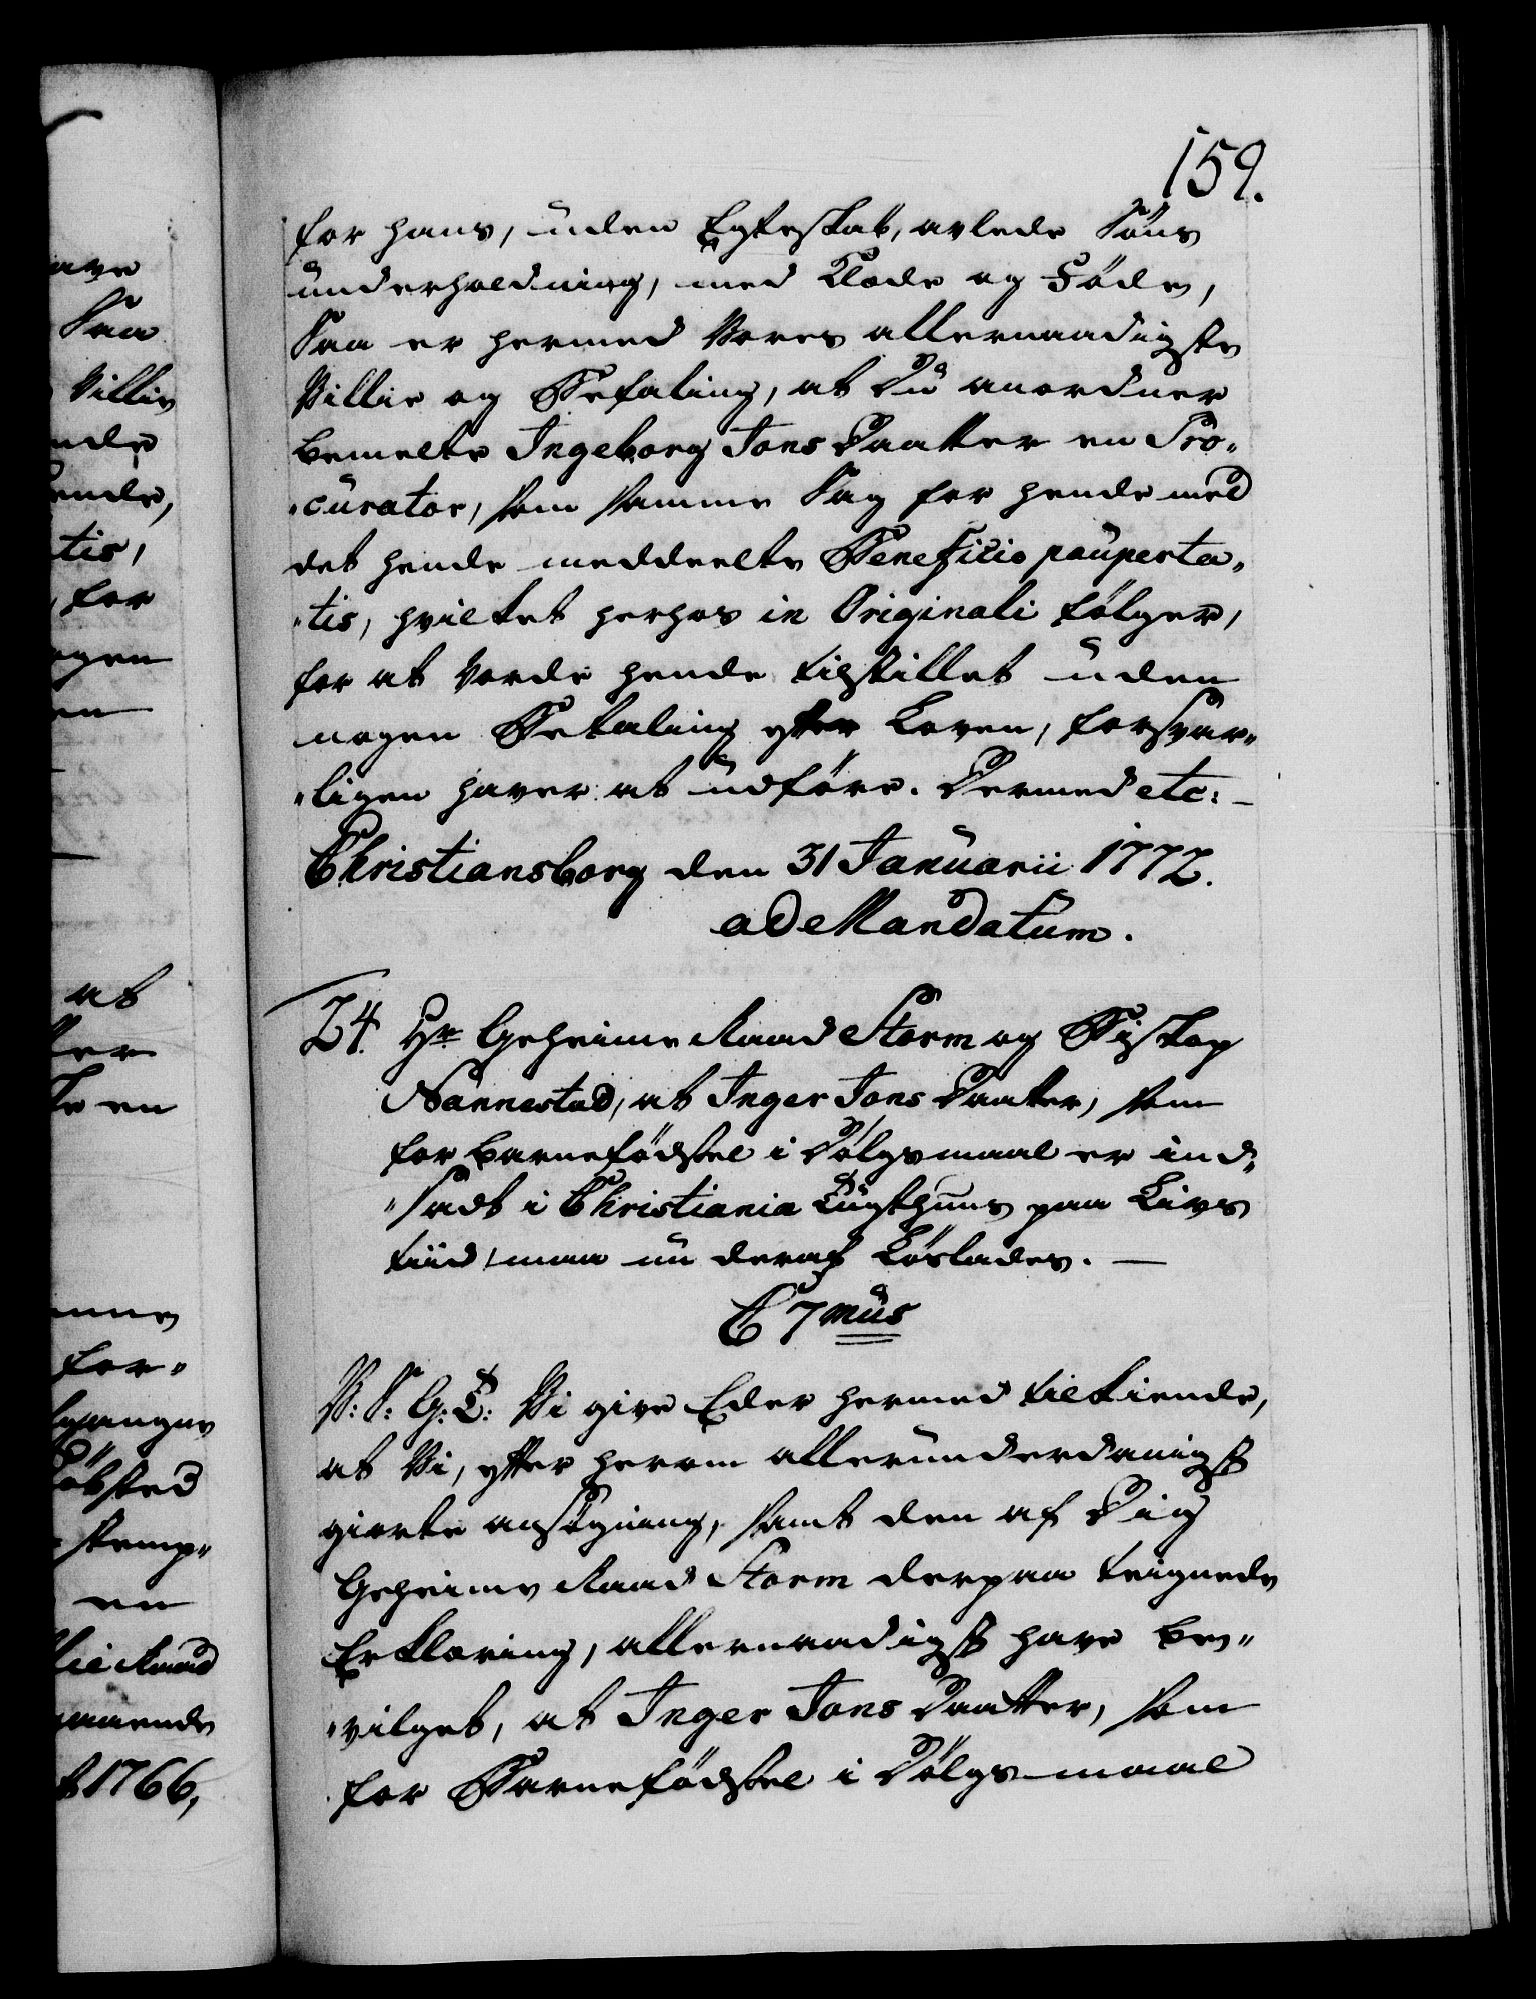 159.
for hans, uden Egteskab, avlede Søns
underholdning, med Klæde og Føde,
Saa er hermed Vores allernaadigste
Villie og Befaling, at Du anordner
bemelte Ingeborg Jons Daatter en Pro„
„curator, som samme Sag for hende med
det hende meddeelte Beneficio pauperta„
„tis, hvilket herhos in Originali følger,
for at vorde hende tilstillet uden
nogen Betaling efter Loven, forsvar„
„ligen haver at udføre. Dermed etc:
Christiansborg den 31 Januarii 1772.
ad Mandatum.
24. Hr Geheime Raad Storm og Biskop
Nannestad, at Inger Jons Daatter, som
for barnefødsel i Dølgsmaal er ind„
„sadt i Christiania Tugthuus paa Livs
tiid, maa nu deraf Løslades. —
C 7mus
V: S: G: T: Vi give Eder hermed tilkiende,
at Vi, efter herom allerunderdanigst
giorte ansøgning, samt den af Dig
Geheime Raad Storm derpaa teignede
Erklæring, allernaadigst have be„
„vilget, at Inger Jons Daatter, som
for Barnefødsel i Dølgsmaal
ave
Saa
Villie
ende,
tis,
for
ogen
at
en
for„
kemp„
en
Raad
1766,